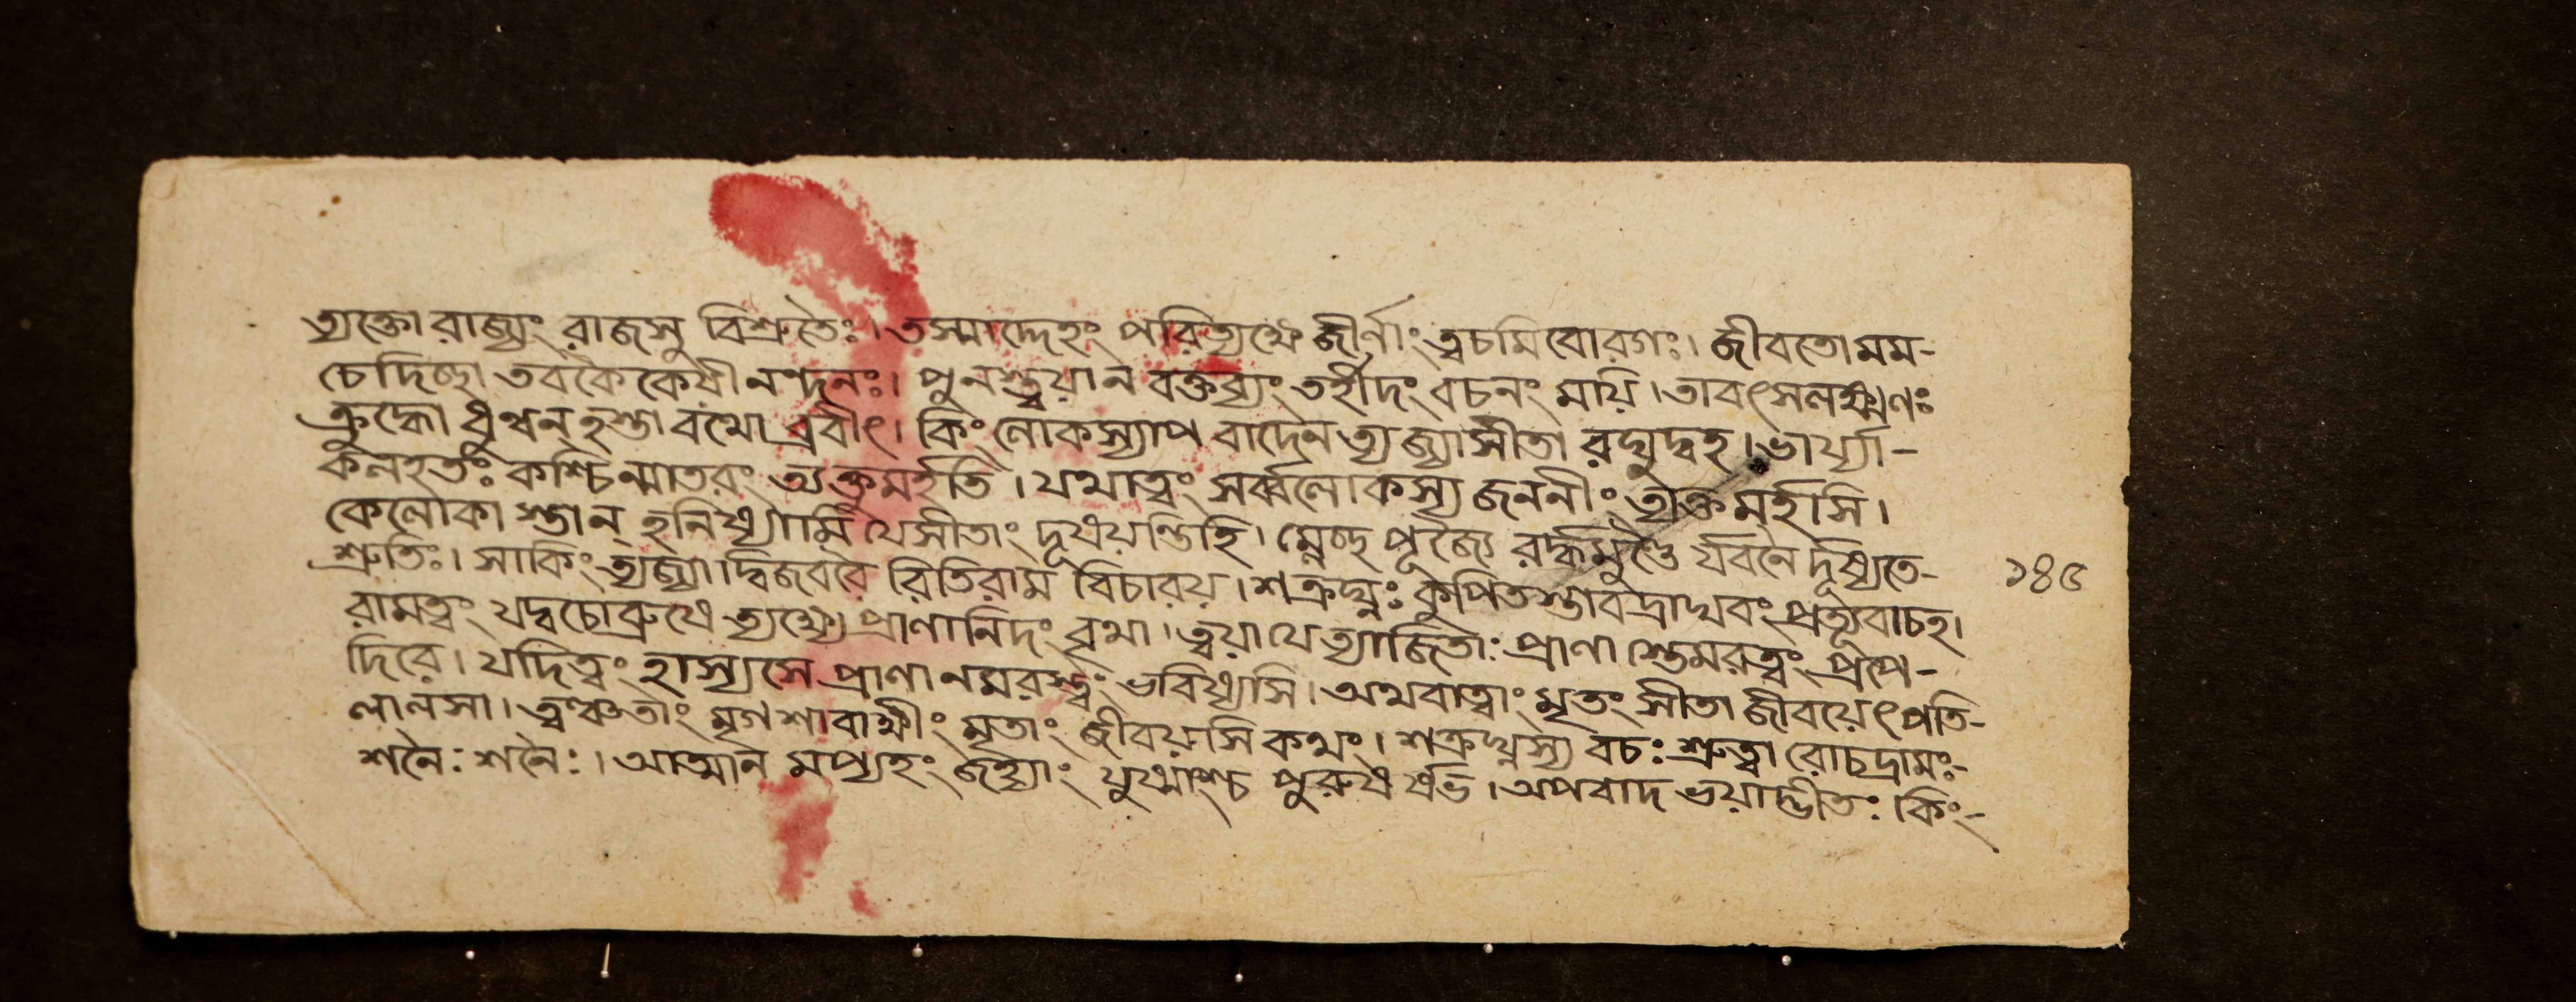 ত্যক্তো রাজ্যং রাজসু বিশ্রুতৈঃ। তস্মাদ্দেহং পরিত্যক্ষ্যে জীর্ণাং ত্বচমিবোরগঃ। জীবতোমম-
চেদিচ্ছা তবকৈকেয়ীনন্দনঃ। পুনস্ত্বয়ান বক্তব্যং তর্হীদং বচনং ময়ি। তাবৎসলক্ষ্মণঃ
ক্রুদ্ধো ধুন্বন্ হস্তাবথো ব্রবীৎ। কিং লোকস্যাপ বাদেন ত্যজ্যাসীতা রঘুদ্বহ। ভার্য্যা-
কলহতঃ কশ্চিন্মাতরং ত্যক্তুমর্হতি। যথাত্বং সর্ব্বলোকস্য জননীং ত্যক্তমর্হসি।
কেলোকা স্তান্ হনিষ্যামি যেসীতাং দূষয়ন্তিহি। ম্লেচ্ছ পূজ্যৈ রর্দ্ধমুণ্ডৈ র্যবনৈ র্দূষ্যতে-
শ্রুতিঃ। সাকিং ত্যজ্যাদ্বিজবরৈ রিতিরাম বিচারয়। শত্রুঘ্নঃ কুপিতস্তাবদ্রাঘবং প্রত্যুবাচহ।
রামত্বং যদ্বচোব্রুষে ত্যক্ষ্যে প্রাণানিদং বৃথা। ত্বয়া যেত্যাজিতাঃ প্রাণা স্তেমরত্বং প্রপে-
দিরে। যদিত্বং হাস্যসে প্রাণানমরস্ত্বং ভবিষ্যসি। অথবাত্বাং মৃতং সীতা জীবয়েৎপতি-
লালসা। ত্বঞ্চতাং মৃগশাবাক্ষীং মৃতাং জীবয়সি কথং। শত্রুঘ্নস্য বচঃ শ্রুত্বা রোচদ্রামঃ-
শনৈঃ শনৈঃ। আত্মান মপ্যহং জহ্যাং যুষ্মাংশ্চ পুরুষ র্ষভ। অপবাদ ভয়াদ্ভীতঃ কিং-
১৪৫